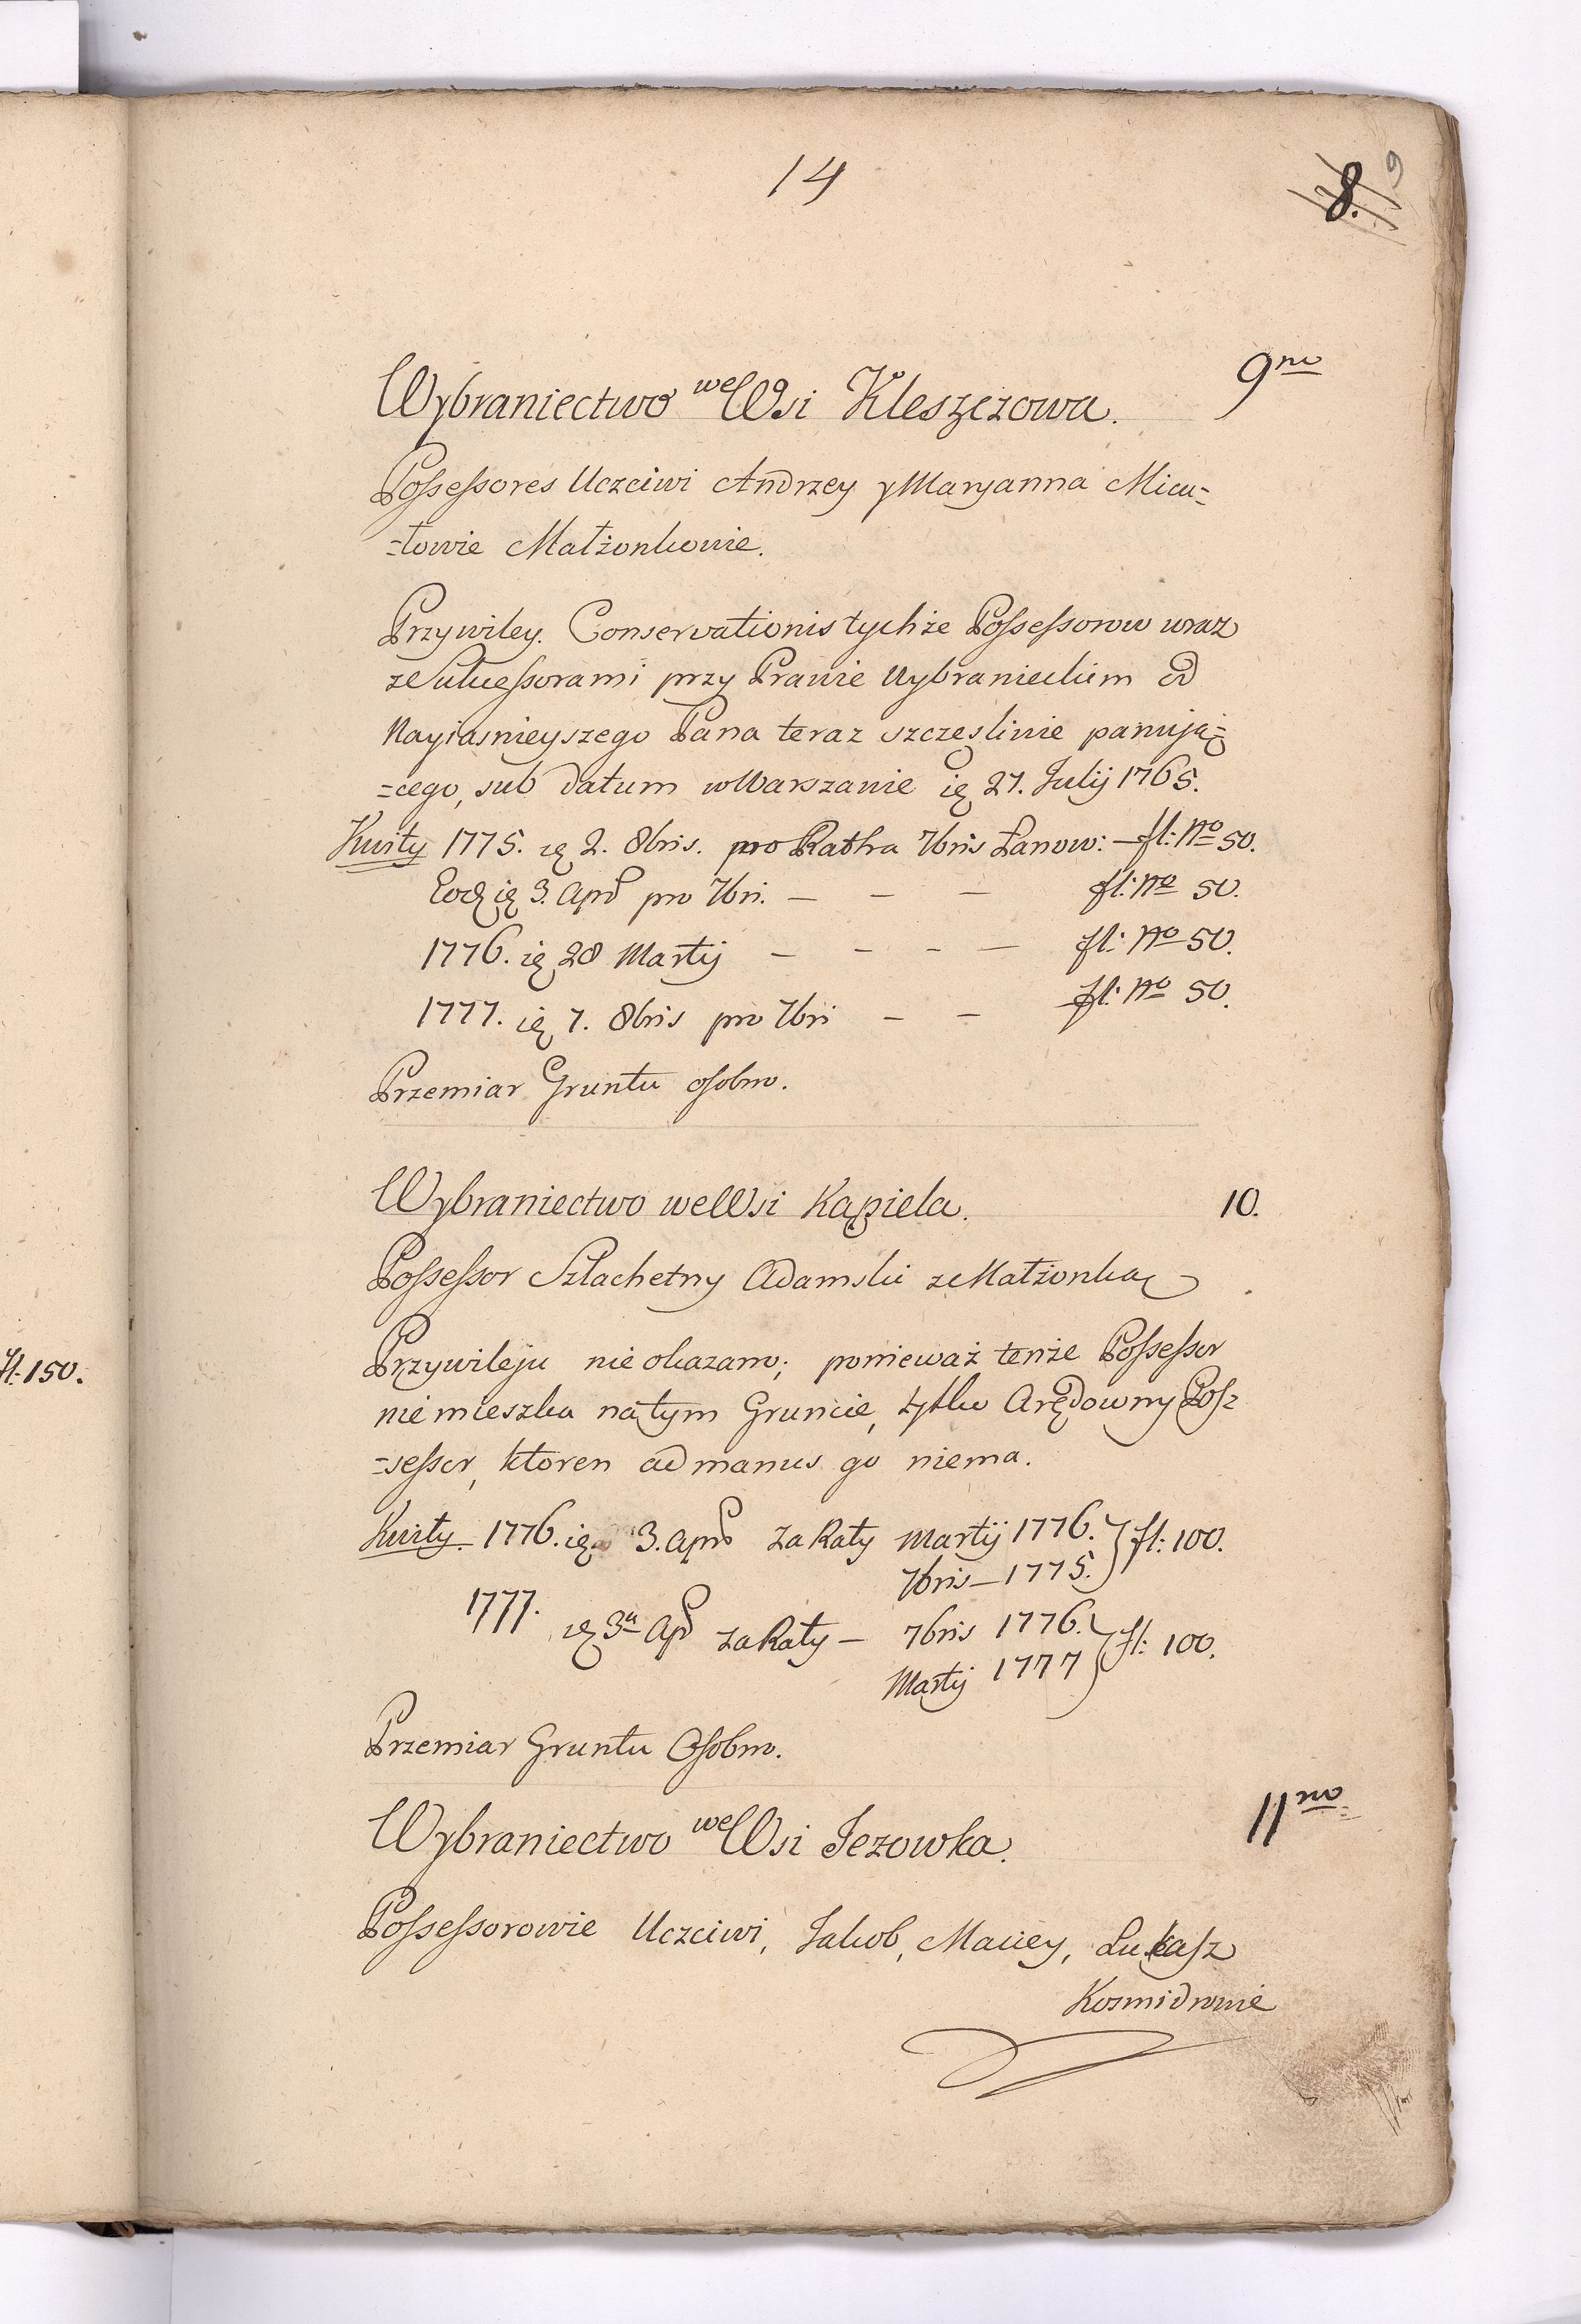 14
8. 9
Wybraniectwo we Wsi Kleszczowa. 9no
Possessores Uczciwi Andrzey y Maryanna Micu=
=łowie Małżonkowie.
Przywiley. Conservationis tychże Possessorow wraz
ze Sukcessorami przy Prawie Wybranieckim od
Nayiasnieyszego Pana teraz szczęsliwie panują=
=cego, sub datum w Warszawie ię 27. Julij 1765.
Kwity 1775. ię 2. 8bris. pro Ratha 7bris Łanow: — fl: No 50.
Eod ię 3. Apr pro 7bri. — — — fl: No 50.
1776. ię 28 Martij — — — — fl: No 50.
1777. ię 7. 8bris pro 7bri — — fl: No 50.
Przemiar Gruntu osobno.
Wybraniectwo we Wsi Kąpiela. 10.
Possessor Szlachetny Adamski z Małżonką
Przywileju nie okazano; ponieważ tenże Possessor
nie mieszka na tym Gruncie, tylko Arędowny Pos=
=sessor, ktoren ad manus go niema.
Kwity. 1776. ię 3. Apr za Raty Martij 1776. } fl: 100.
7bris — 1775.
1777. ię 3a Ap za Raty — 7bris 1776. } fl: 100.
Martij 1777
Przemiar Gruntu Osobno.
Wybraniectwo we Wsi Jezowka. 11mo
Possessorowie Uczciwi, Jakob, Maciey, Lukasz
Kosmidrowie
fl: 150.